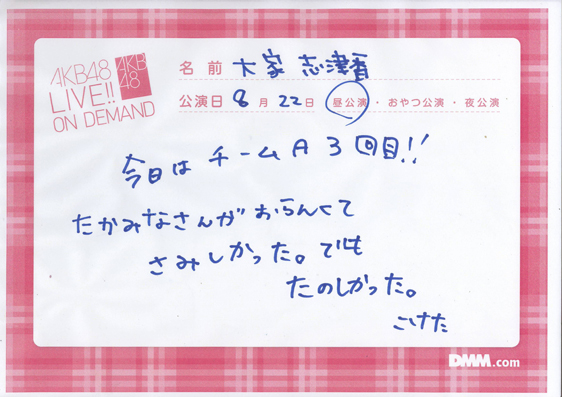 AKB48
LIVE!!
ON DEMAND
AKB
48
名前 大家 志津香
公演日 8月22日 昼公演・おやつ公演・夜公演
今日は チームA 3回目!!
たかみなさんが おらんくて
さみしかった。でも
たのしかった。
こけた
DMM.com